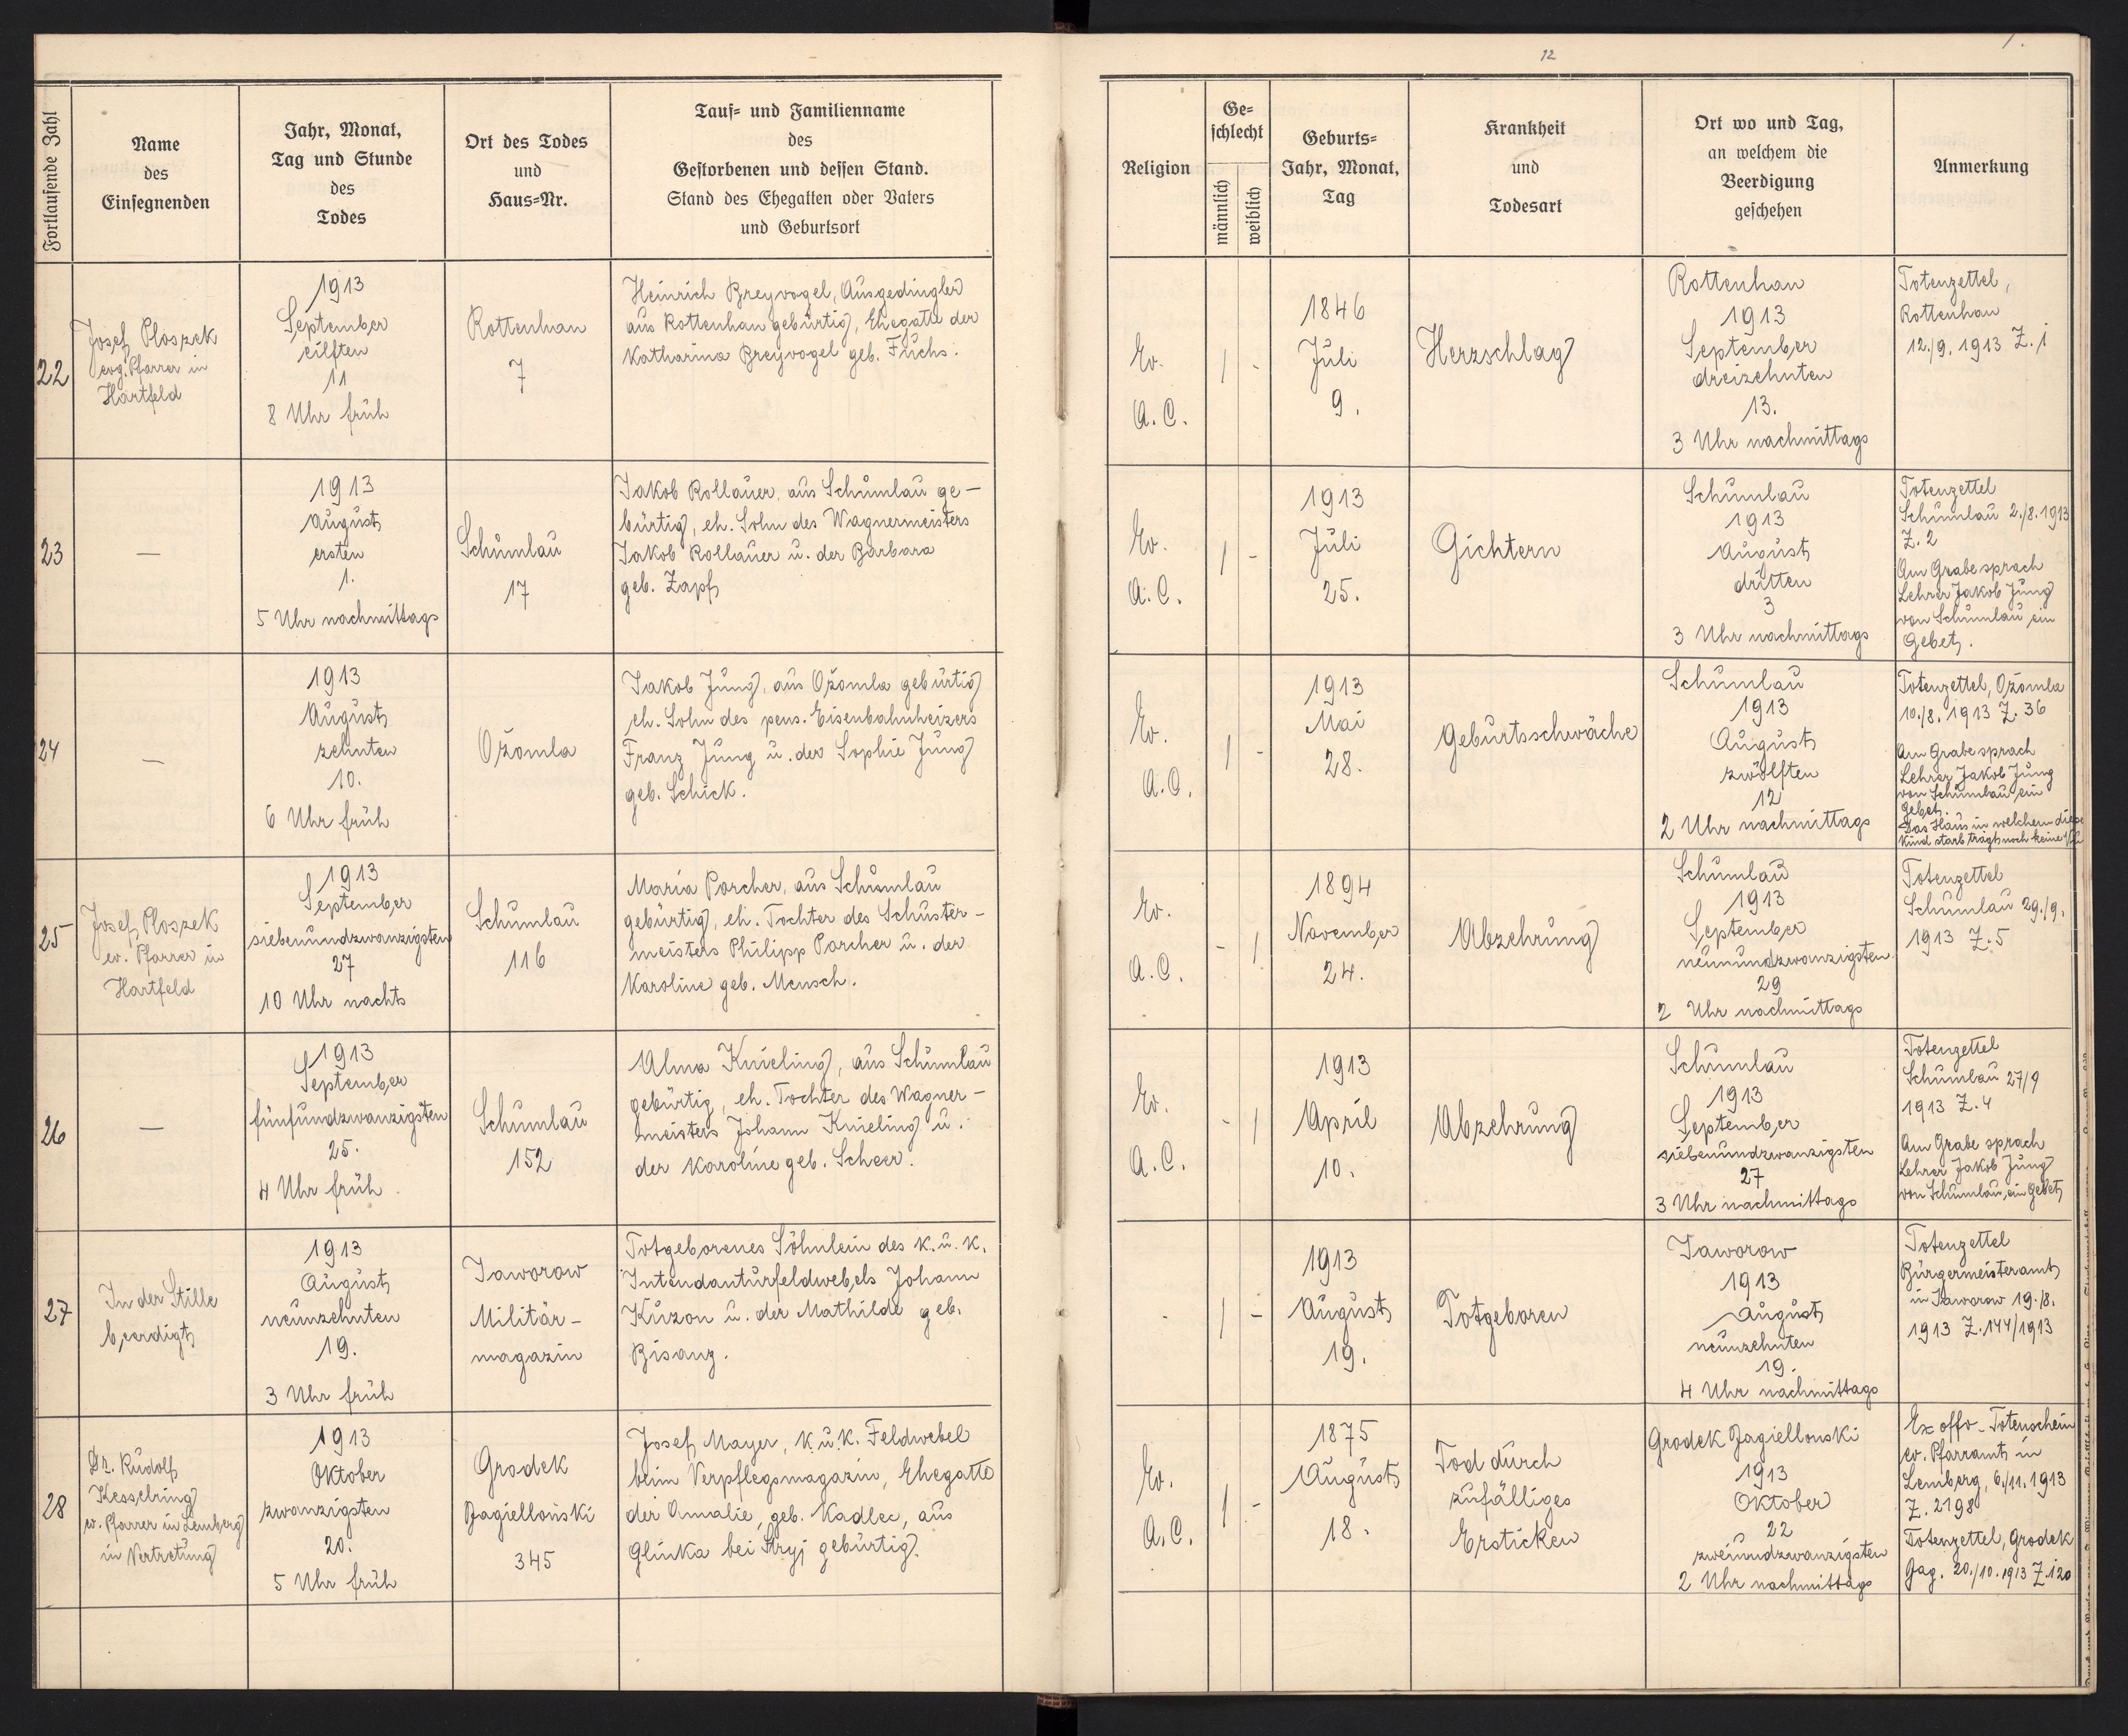 12
Fortlaufende Zahl
Name
des
Einsegnenden
Jahr, Monat,
Tag und Stunde
des
Todes
Ort des Todes
und
Haus=Nr.
Tauf= und Familienname
des
Gestorbenen und dessen Stand.
Stand des Ehegatten oder Vaters
und Geburtsort
Religion
Ge=
schlecht
männlich
weiblich
Geburts=
Jahr, Monat,
Tag
Krankheit
und
Todesart
Ort wo und Tag,
an welchem die
Beerdigung
geschehen
Anmerkung
22
Josef Ploszek
evg. Pfarrer in
Hartfeld
1913
September
eilften
11
8 Uhr früh
Rottenhan
7
Heinrich Breyvogel, Ausgedingler
aus Rottenhan gebürtig, Ehegatte der
Katharina Breyvogel geb. Fuchs.
Ev.
A. C.
/ -
1846
Juli
9.
Herzschlag
Rottenhan
1913
September
dreizehnten
13.
3 Uhr nachmittags
Totenzettel,
Rottenhan
12./9. 1913 Z. 1
23
—
1913
August
ersten
1.
5 Uhr nachmittags
Schumlau
17
Jakob Rollauer, aus Schumlau ge-
bürtig, eh. Sohn des Wagnermeisters
Jakob Rollauer u. der Barbara
geb. Zapf
Ev.
A. C.
/ -
1913
Juli
25.
Gichtern
Schumlau
1913
August
dritten
3
3 Uhr nachmittags
Totenzettel
Schumlau 2./8. 1913
Z. 2
Am Grabe sprach
Lehrer Jakob Jung
von Schumlau ein
Gebet.
24
—
1913
August
zehnten
10.
6 Uhr früh
Ożomla
Jakob Jung, aus Ożomla gebürtig
eh. Sohn des pens. Eisenbahnheizers
Franz Jung u. der Sophie Jung
geb. Schick.
Ev.
A. C.
/ -
1913
Mai
28.
Geburtsschwäche
Schumlau
1913
August
zwölften
12
2 Uhr nachmittags
Totenzettel, Ożomla
10./8. 1913 Z. 36
Am Grabe sprach
Lehrer Jakob Jung
von Schumlau ein
Gebet.
Das Haus in welchem
Kind starb trägt noch keine
25
Josef Ploszek
ev. Pfarrer in
Hartfeld
1913
September
siebenundzwanzigsten
27
10 Uhr nachts
Schumlau
116
Maria Porcher, aus Schumlau
gebürtig, eh. Tochter des Schuster-
meisters Philipp Porcher u. der
Karoline geb. Mensch.
Ev.
A. C.
- /
1894
November
24.
Abzehrung
Schumlau
1913
September
neunundzwanzigsten
29
2 Uhr nachmittags
Totenzettel
Schumlau 29./9.
1913 Z. 5
26
—
1913
September
fünfundzwanzigsten
25.
4 Uhr früh
Schumlau
152
Alma Knieling, aus Schumlau
gebürtig, eh. Tochter des Wagner-
meisters Johann Knieling u.
der Karoline geb. Scheer.
Ev.
A. C.
- /
1913
April
10.
Abzehrung
Schumlau
1913
September
siebenundzwanzigsten
27
3 Uhr nachmittags
Totenzettel
Schumlau 27/9
1913 Z. 4
Am Grabe sprach
Lehrer Jakob Jung
von Schumlau, ein Gebet
27
In der Stille
beerdigt
1913
August
neunzehnten
19.
3 Uhr früh
Jaworow
Militär-
magazin
Totgeborenes Söhnlein des K. u. K.
Intendanturfeldwebels Johann
Kuzon u. der Mathilde geb.
Bisanz.
-
/ -
1913
August
19.
Totgeboren
Jaworow
1913
August
neunzehnten
19.
4 Uhr nachmittags
Totenzettel
Bürgermeisteramt
in Jaworow 19./8.
1913 Z. 144/1913
28
Dr. Rudolf
Kesselring
ev. Pfarrer in Lemberg
in Vertretung
1913
Oktober
zwanzigsten
20.
5 Uhr früh
Grodek
Jagielloński
345
Josef Mayer, K. u. K. Feldwebel
beim Verpflegsmagazin, Ehegatte
der Amalie, geb. Kadlec, aus
Glinka bei Stryj gebürtig.
Ev.
A. C.
/ -
1875
August
18.
Tod durch
zufälliges
Ersticken
Grodek Jagiellonski
1913
Oktober
22
zweiundzwanzigsten
2 Uhr nachmittags
Ex offo - Totenschein
ev. Pfarramt in
Lemberg, 6./11. 1913
Z. 2198
Totenzettel, Grodek
Jag. 20./10. 1913 Z. 120